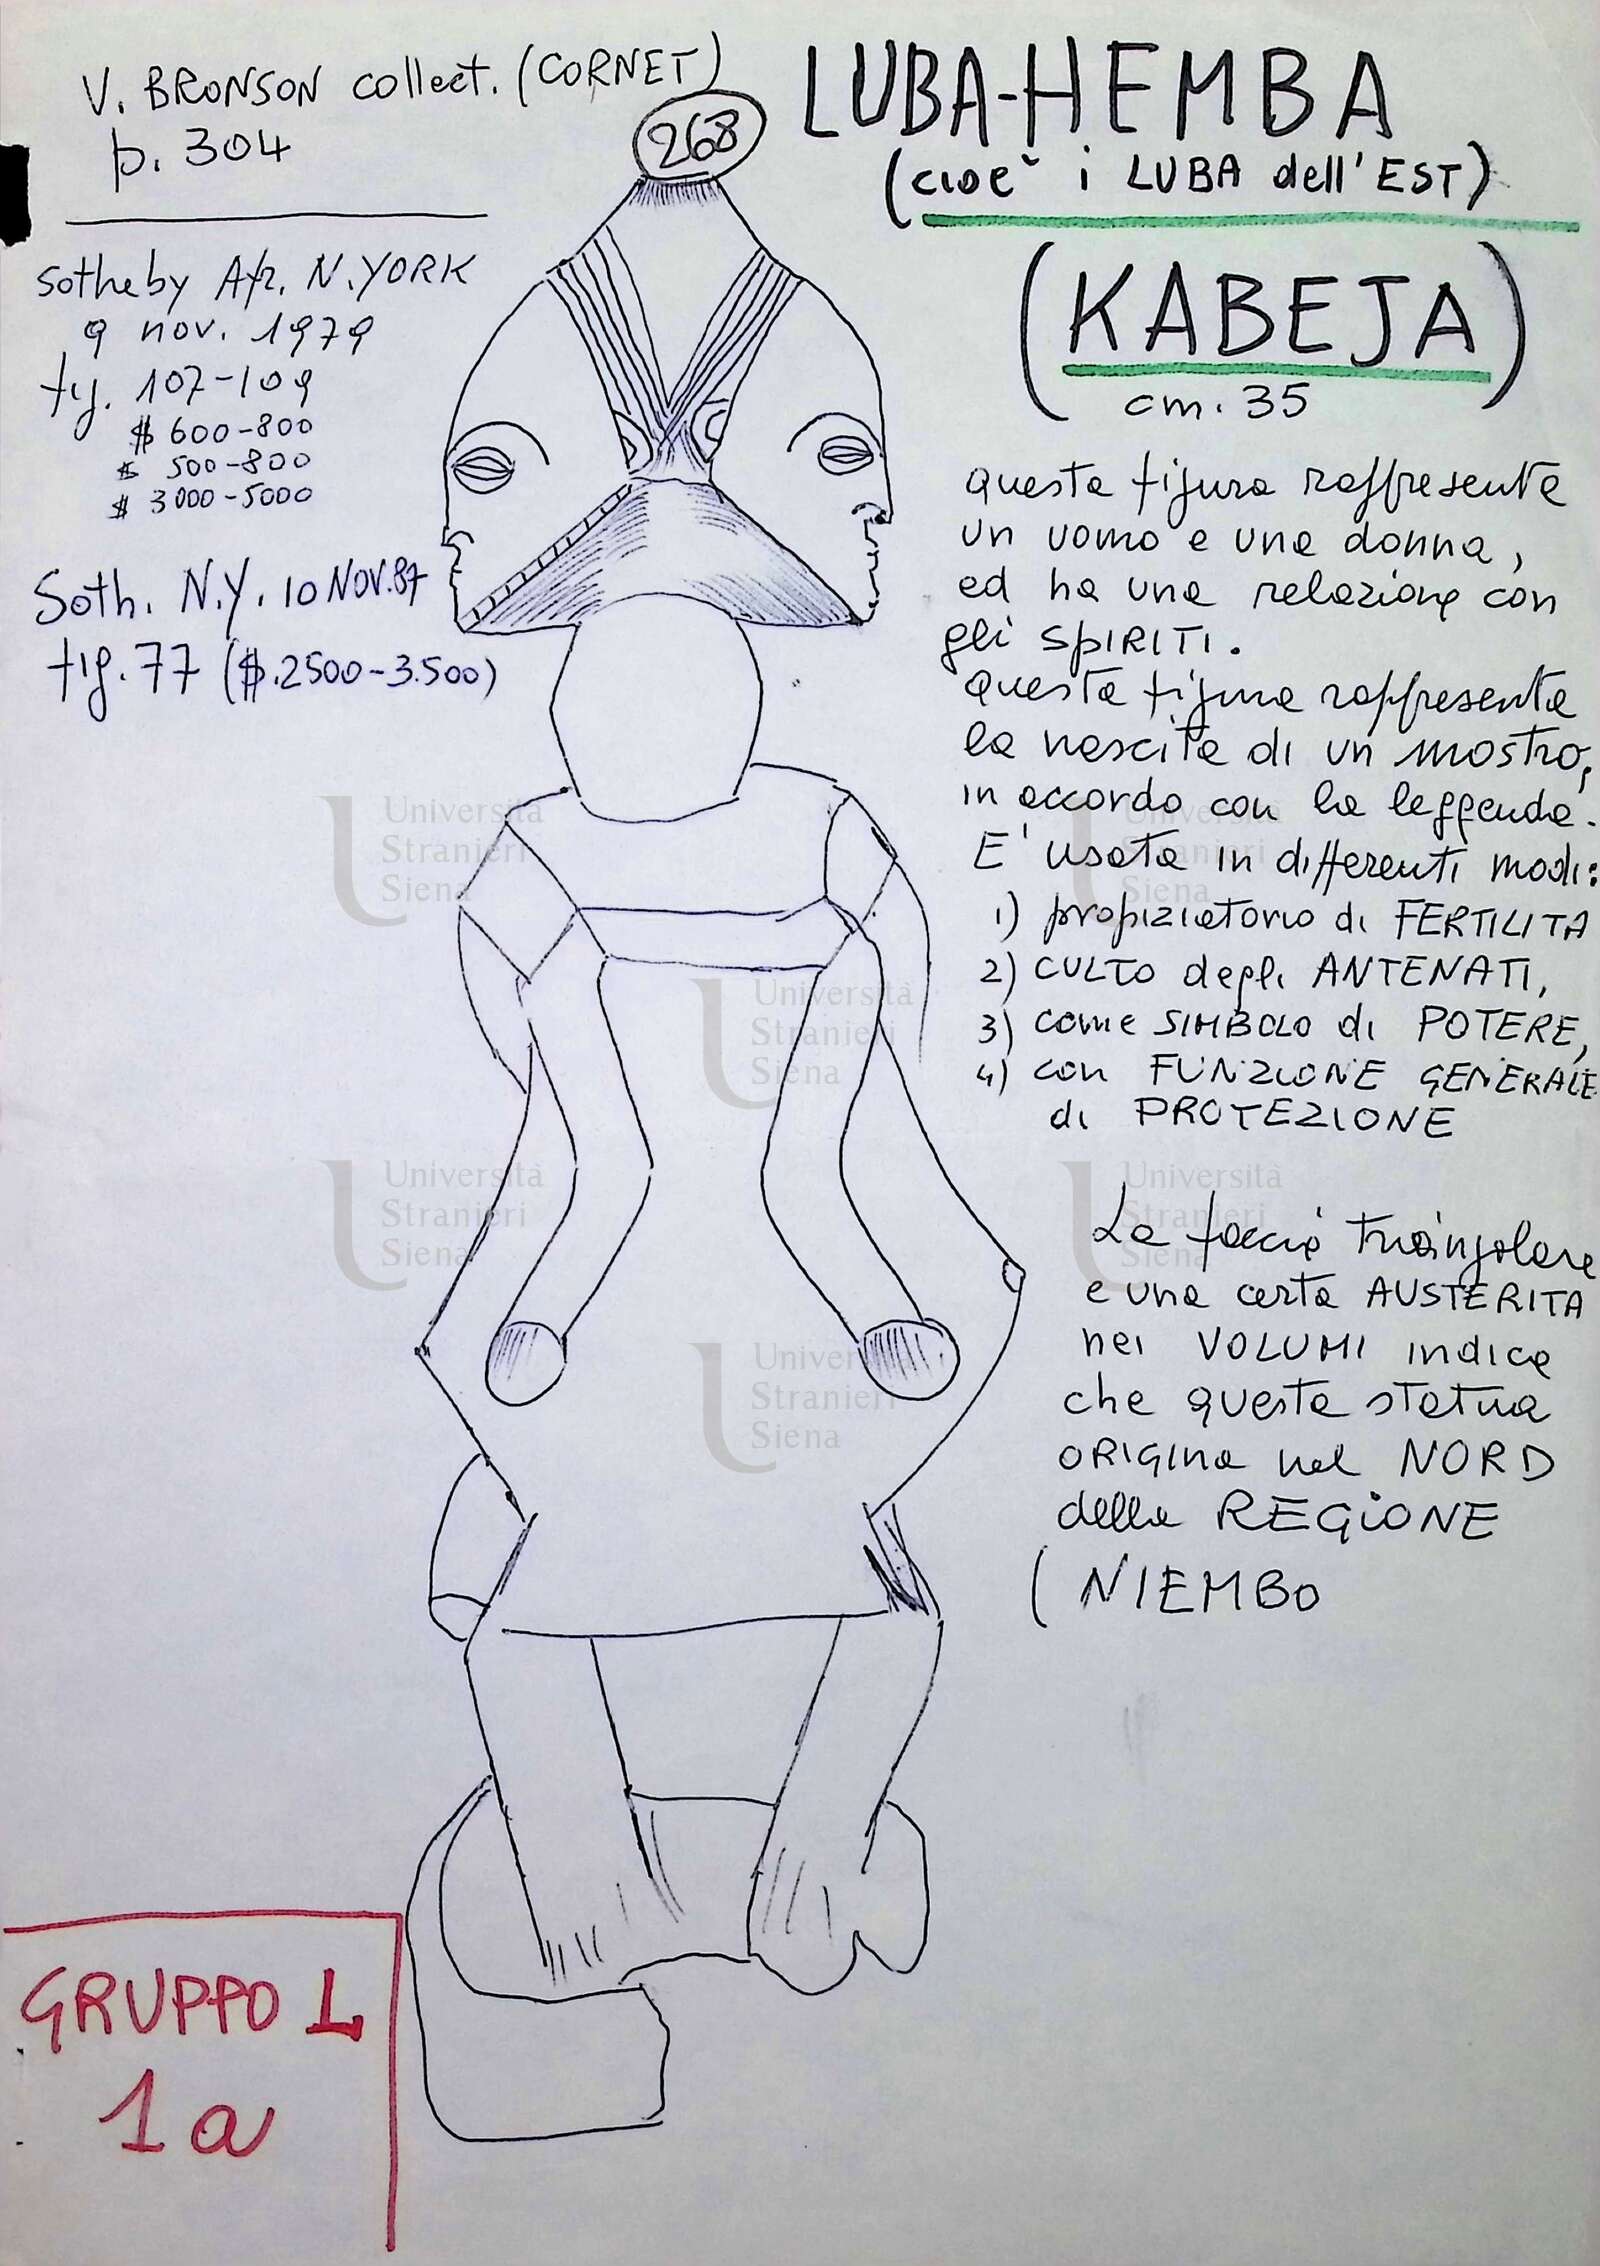 V. BRONSON collect. (CORNET)
p. 304
268
LUBA-HEMBA
(cioè i LUBA dell'EST)
(KABEJA)
cm. 35
Sotheby Afr. N.YORK
9 nov. 1979
fig. 107-109
$ 600-800
$ 500-800
$ 3000-5000
Soth. N.Y. 10 NOV.87
fig. 77 ($.2500-3.500)
Questa figura rappresenta
un uomo e una donna,
ed ha una relazione con
gli SPIRITI.
Questa figura rappresenta
la nascita di un mostro,
in accordo con la leggenda.
E' usata in differenti modi:
1) propiziatorio di FERTILITA
2) CULTO degli ANTENATI,
3) come SIMBOLO di POTERE,
4) con FUNZIONE GENERALE
di PROTEZIONE
La faccia triangolare
e una certa AUSTERITA
nei VOLUMI indica
che questa statua
ORIGINA nel NORD
della REGIONE
(NIEMBO
GRUPPO L
1a
Università
Stranieri
Siena
Università
Stranieri
Siena
Università
Stranieri
Siena
Università
Stranieri
Siena
Università
Stranieri
Siena
Università
Stranieri
Siena